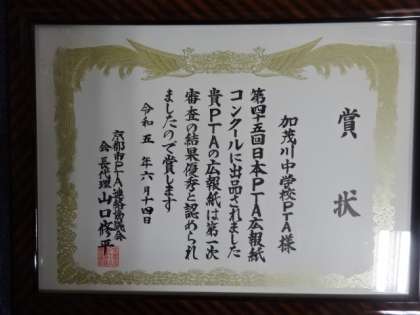 賞状
加茂川中学校PTA様
第四十五回日本PTA広報紙
コンクールに出品されました
貴PTAの広報紙は第一次
審査の結果優秀と認められ
ましたので賞します
令和五年六月十四日
京都市PTA連絡協議会
会長代理 山口修平